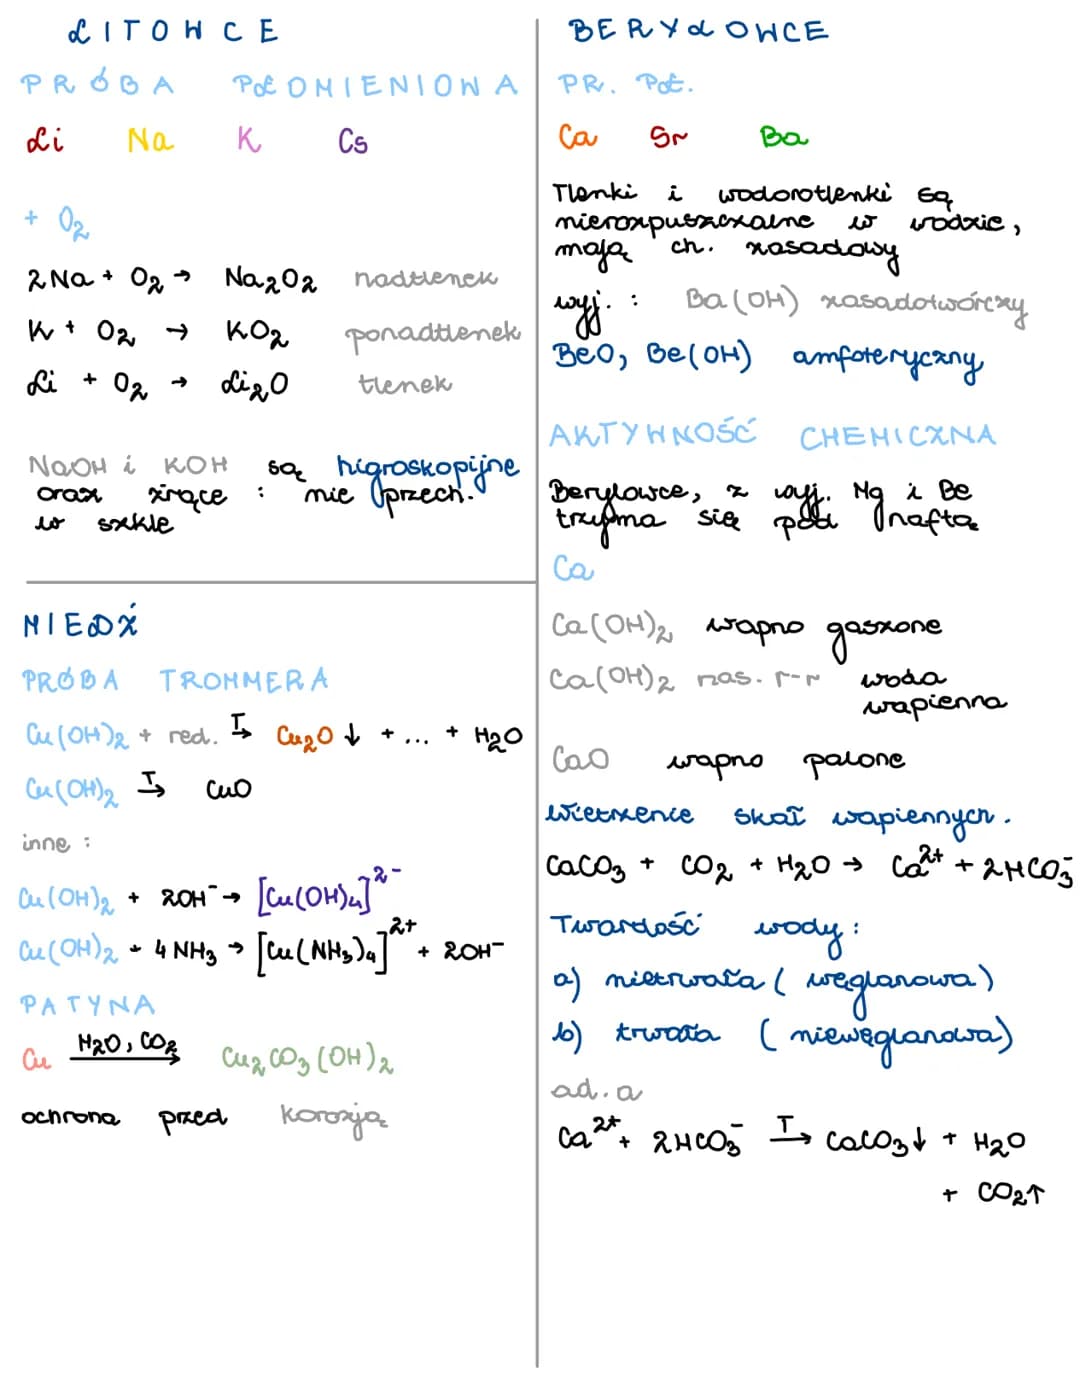 LITOWCE
PRÓBA PŁOMIENIOWA
Li Na K Cs
+ O₂
2Na + O₂ → Na₂O₂ nadtlenek
K + O₂ → KO₂ ponadtlenek
Li + O₂ → Li₂O tlenek
NaOH i KOH są higroskopijne
oraz żrące : nie przech.
w szkle
MIEDŹ
PRÓBA TROMMERA
Cu(OH)₂ + red. T→ Cu₂O ↓ + ... + H₂O
Cu(OH)₂ T→ CuO
inne :
Cu(OH)₂ + 2OH⁻ → [Cu(OH)₄]²⁻
Cu(OH)₂ + 4NH₃ → [Cu(NH₃)₄]²⁺ + 2OH⁻
PATYNA
Cu H₂O, CO₂→ Cu₂CO₃(OH)₂
ochrona przed korozją
BERYLOWCE
PR. PŁ.
Ca Sr Ba
Tlenki i wodorotlenki są
nierozpuszczalne w wodzie,
mają ch. zasadowy
wyj. : Ba(OH) zasadotwórczy
BeO, Be(OH) amfoteryczny
AKTYWNOŚĆ CHEMICZNA
Berylowce, z wyj. Mg i Be
trzyma się pod naftą
Ca
Ca(OH)₂ wapno gaszone
Ca(OH)₂ nas. r-r woda
wapienna
CaO wapno palone
Wietrzenie skał wapiennych.
CaCO₃ + CO₂ + H₂O → Ca²⁺ + 2HCO₃⁻
Twardość wody:
a) nietrwała (węglanowa)
b) trwała (niewęglanowa)
ad. a
Ca²⁺ + 2HCO₃⁻ T→ CaCO₃↓ + H₂O
+ CO₂↑